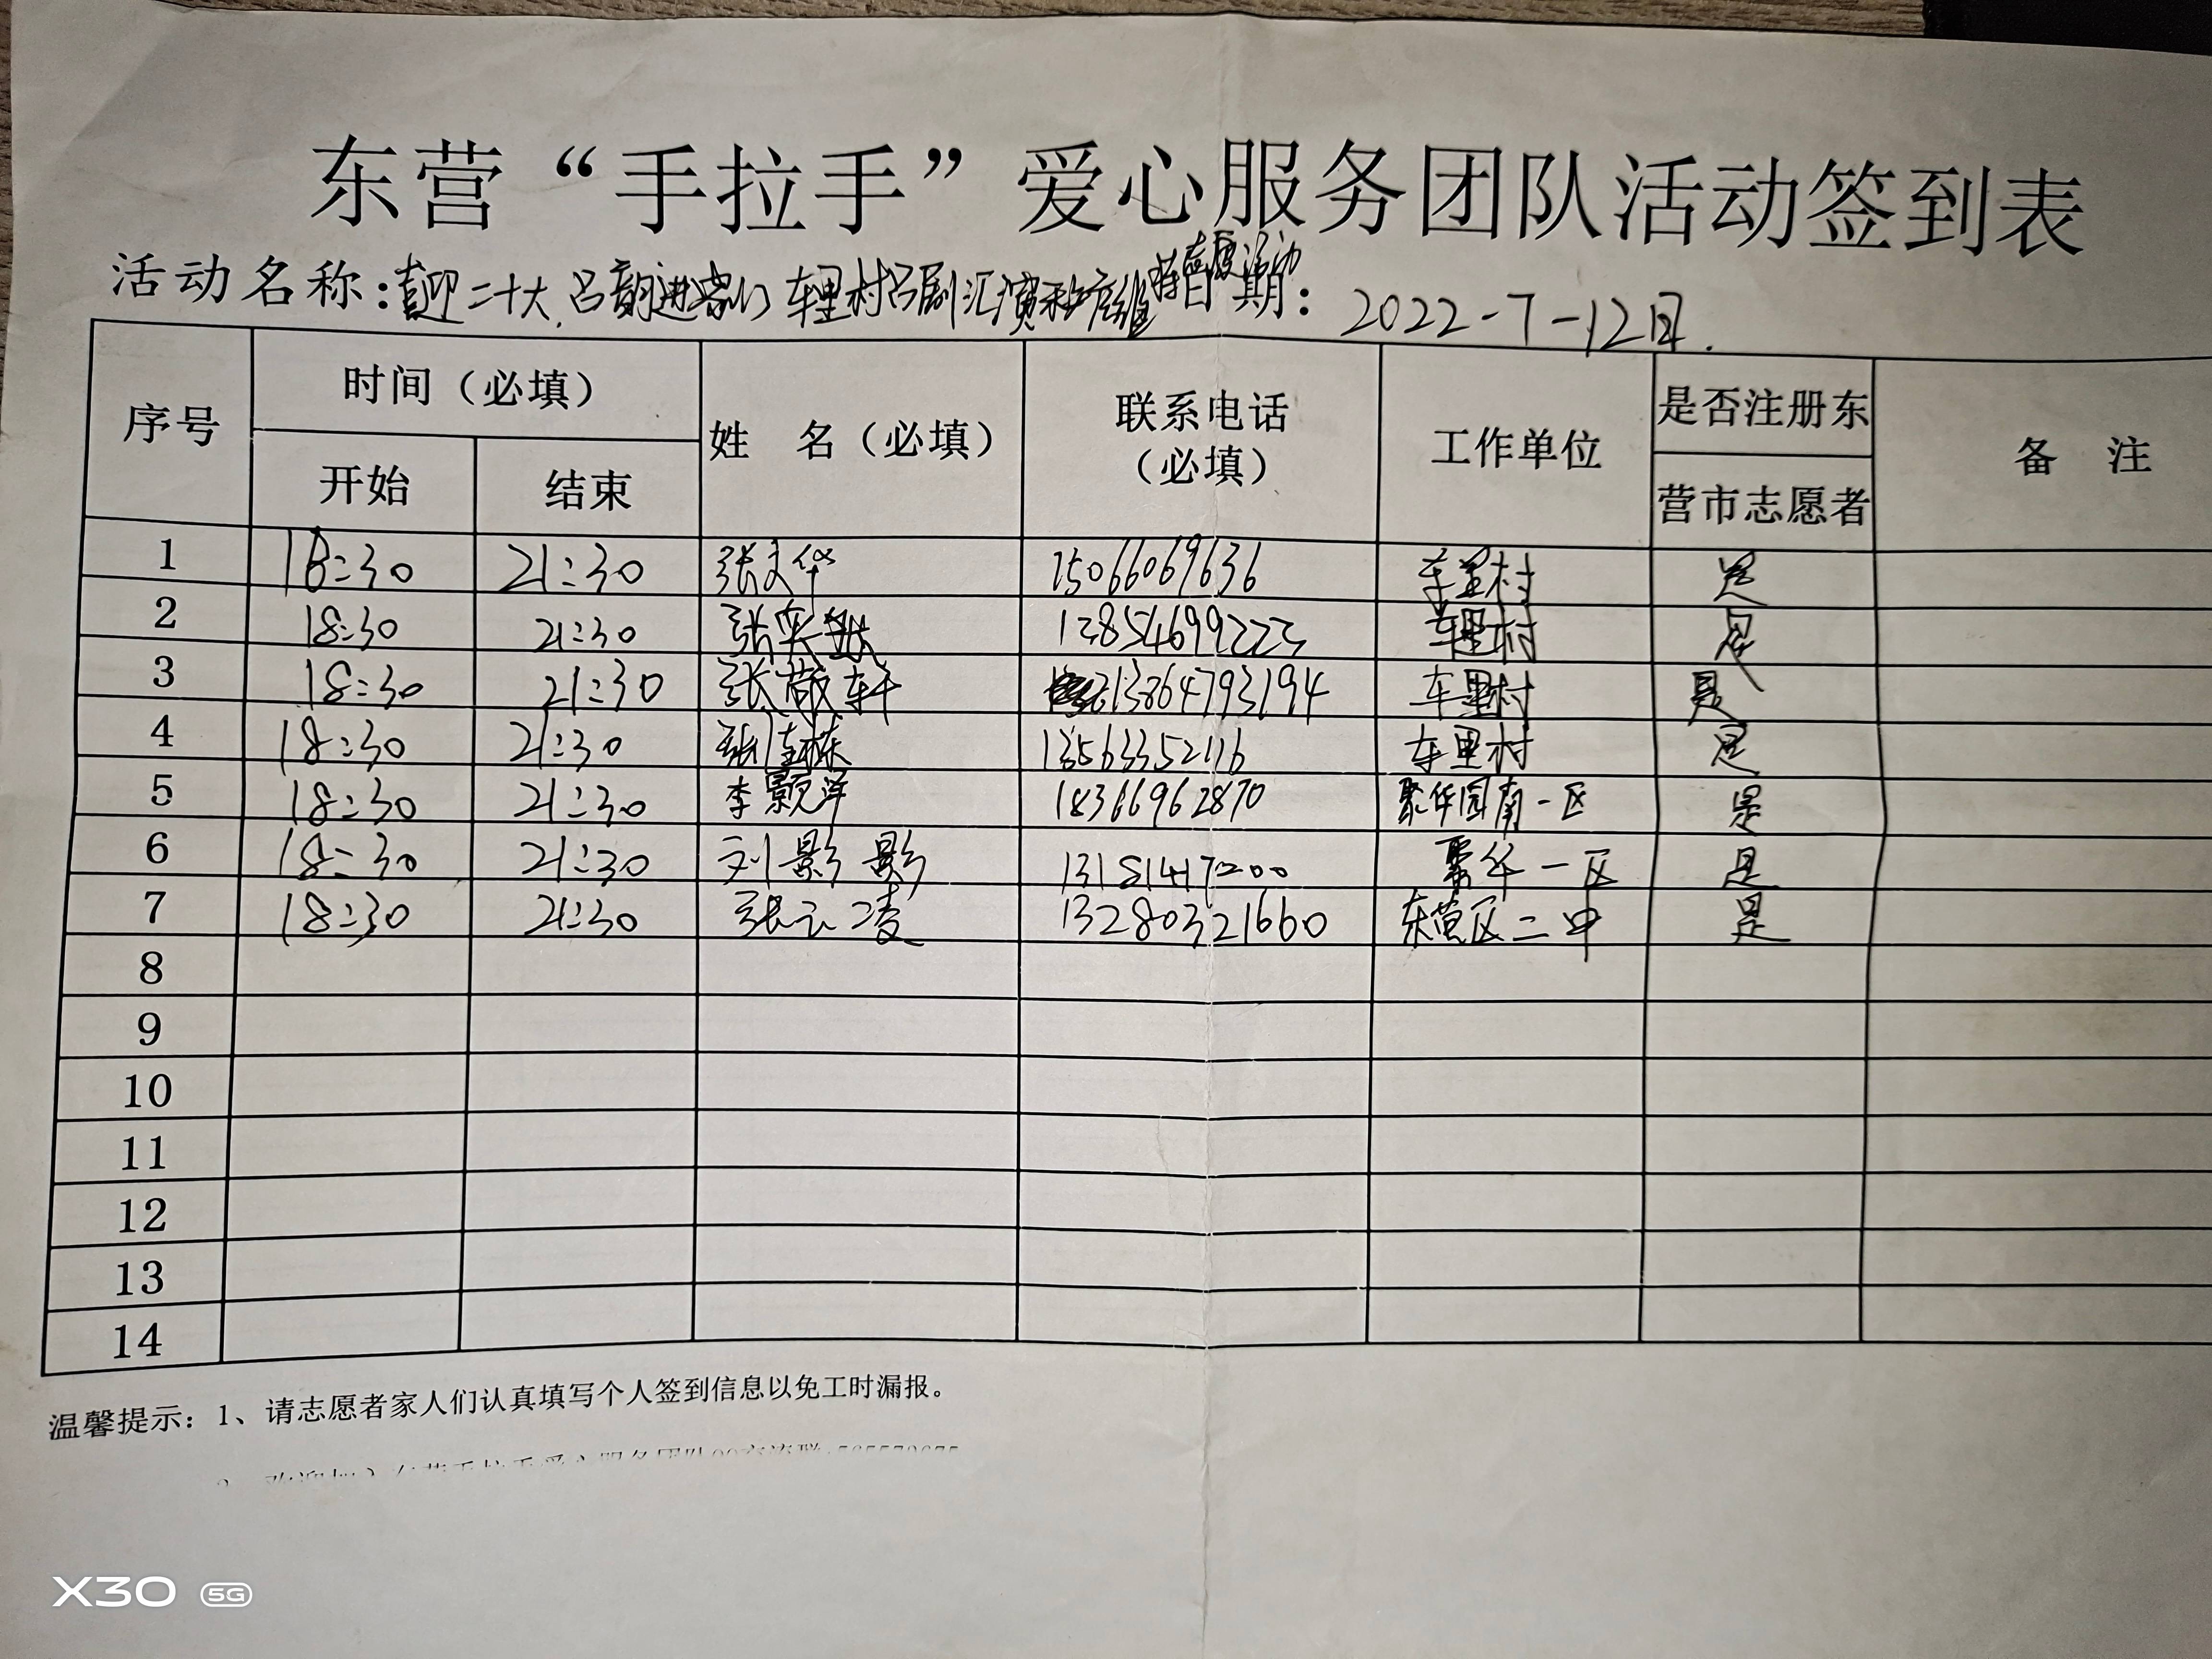 东营“手拉手”爱心服务团队活动签到表
活动名称:喜迎二十大,吕韵进家门 车里村吕剧汇演秩序维持志愿活动 日期:2022-7-12日.
序号 时间(必填) 姓 名(必填) 联系电话(必填) 工作单位 是否注册东营市志愿者 备 注
开始 结束
1 18:30 21:30 张文华 15066069636 车里村 是
2 18:30 21:30 张 13854699222 车里村 是
3 18:30 21:30 张敬轩 13864793194 车里村 是
4 18:30 21:30 张佳栋 车里村 是
5 18:30 21:30 李颢洋 18366962870 聚华园南一区 是
6 18:30 21:30 刘影影 13181417200 聚华一区 是
7 18:30 21:30 张云凌 13280321660 东营区二中 是
8
9
10
11
12
13
14
温馨提示:1、请志愿者家人们认真填写个人签到信息以免工时漏报。
X30 5G